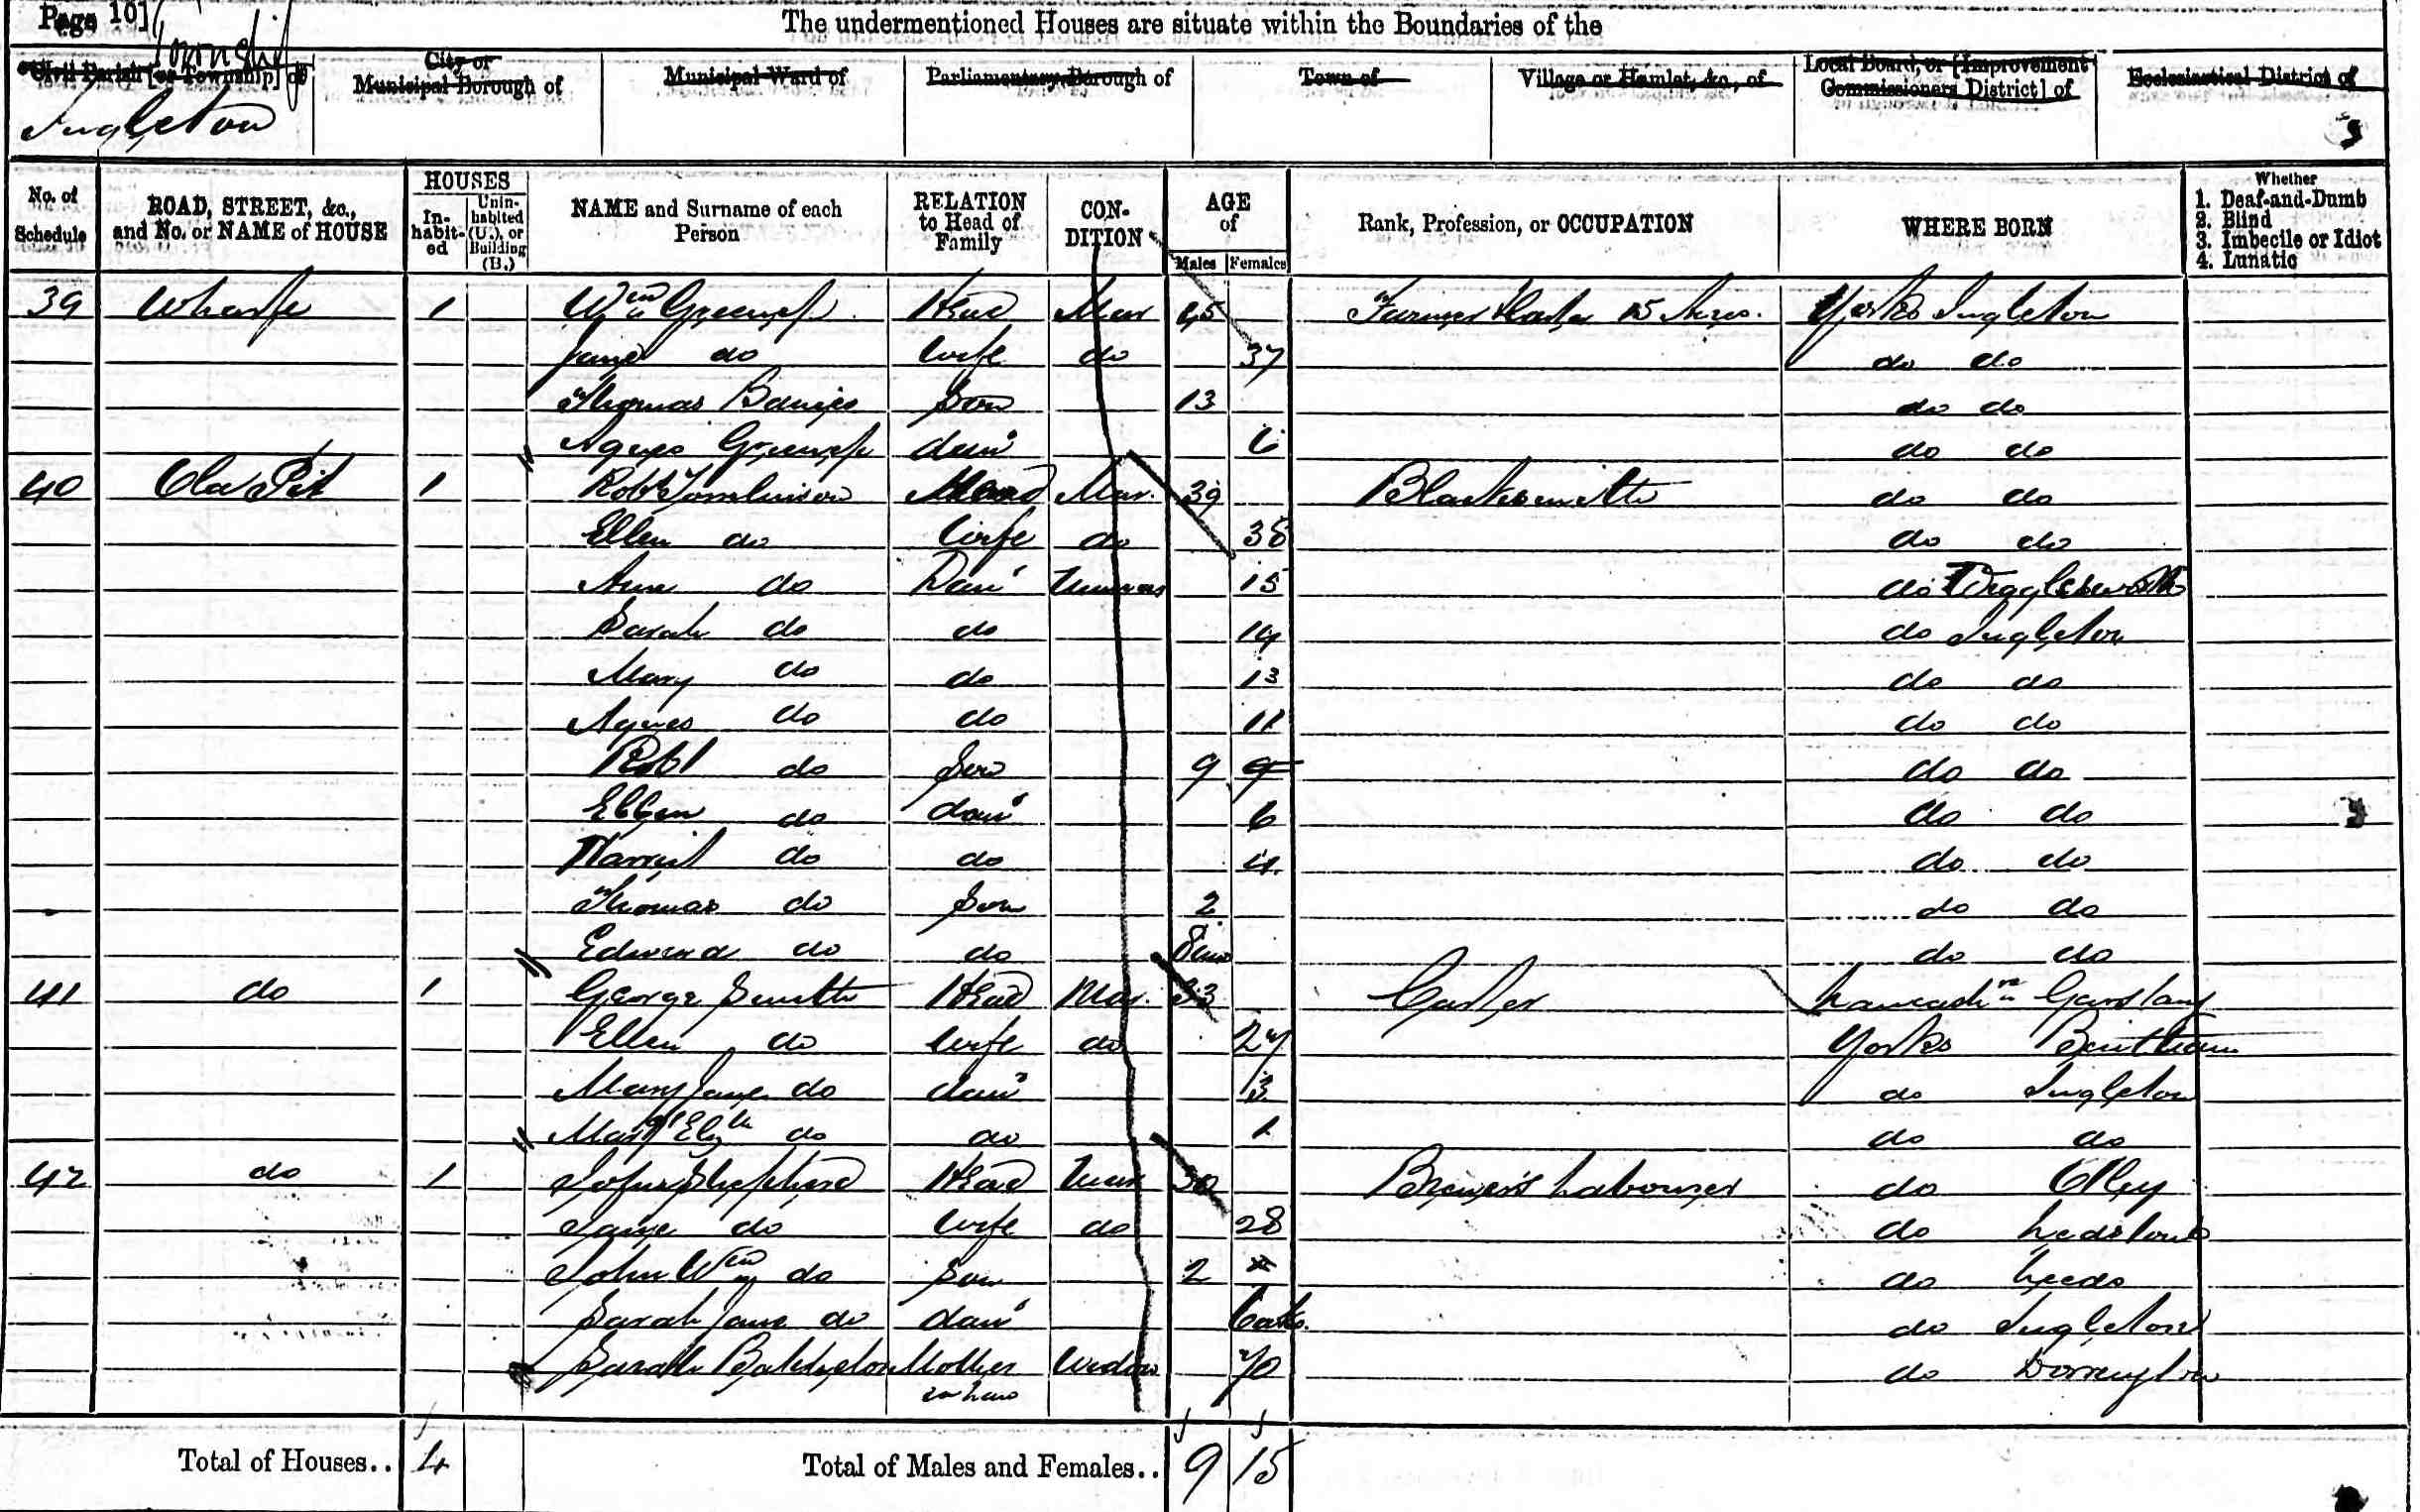 Page 10]
The undermentioned Houses are situate within the Boundaries of the
Township
Civil Parish [or Township] of
City or Municipal Borough of
Municipal Ward of
Parliamentary Borough of
Town of
Village or Hamlet, &c., of
Local Board, or [Improvement Commissioners District] of
Ecclesiastical District of
Ingleton
No. of Schedule
ROAD, STREET, &c., and No. or NAME of HOUSE
HOUSES
In-habit-ed
Unin-habited (U.), or Building (B.)
NAME and Surname of each Person
RELATION to Head of Family
CON-DITION
AGE of
Males
Females
Rank, Profession, or OCCUPATION
WHERE BORN
Whether
1. Deaf-and-Dumb
2. Blind
3. Imbecile or Idiot
4. Lunatic
39 Wharfe 1 Wm Head Mar 45 Farmer 15 Acres. Yorks Ingleton
Jane do Wife do 37 do do
Thomas Son 13 do do
Agnes daur 6 do do
40 Pit 1 Robt Tomlinson Head Mar. 39 Blacksmith do do
Ellen do Wife do 38 do do
Ann do Daur Unmar 15 do Wigglesworth
Sarah do do 14 do Ingleton
Mary do do 13 do do
Agnes do do 11 do do
Robt do Son 9 9 do do
Ellen do daur 6 do do
Harriet do do 4 do do
Thomas do Son 2 do do
Edward do do 8mo do do
41 do 1 George Smith Head Mar. 33 Carter Lancashre Garstang
Ellen do Wife do 27 Yorks Bentham
Mary Jane do daur 3 do Ingleton
Margt Elizth do do 1 do do
42 do 1 John Shepherd Head Mar 30 Brewer's Labourer do Otley
Jane do Wife do 28 do Ledstone
John Wm do Son 2 do Leeds
Sarah Jane do daur 6mths. do Ingleton
Sarah Mother in Law Widow 70 do
Total of Houses.. 4
Total of Males and Females.. 9 15